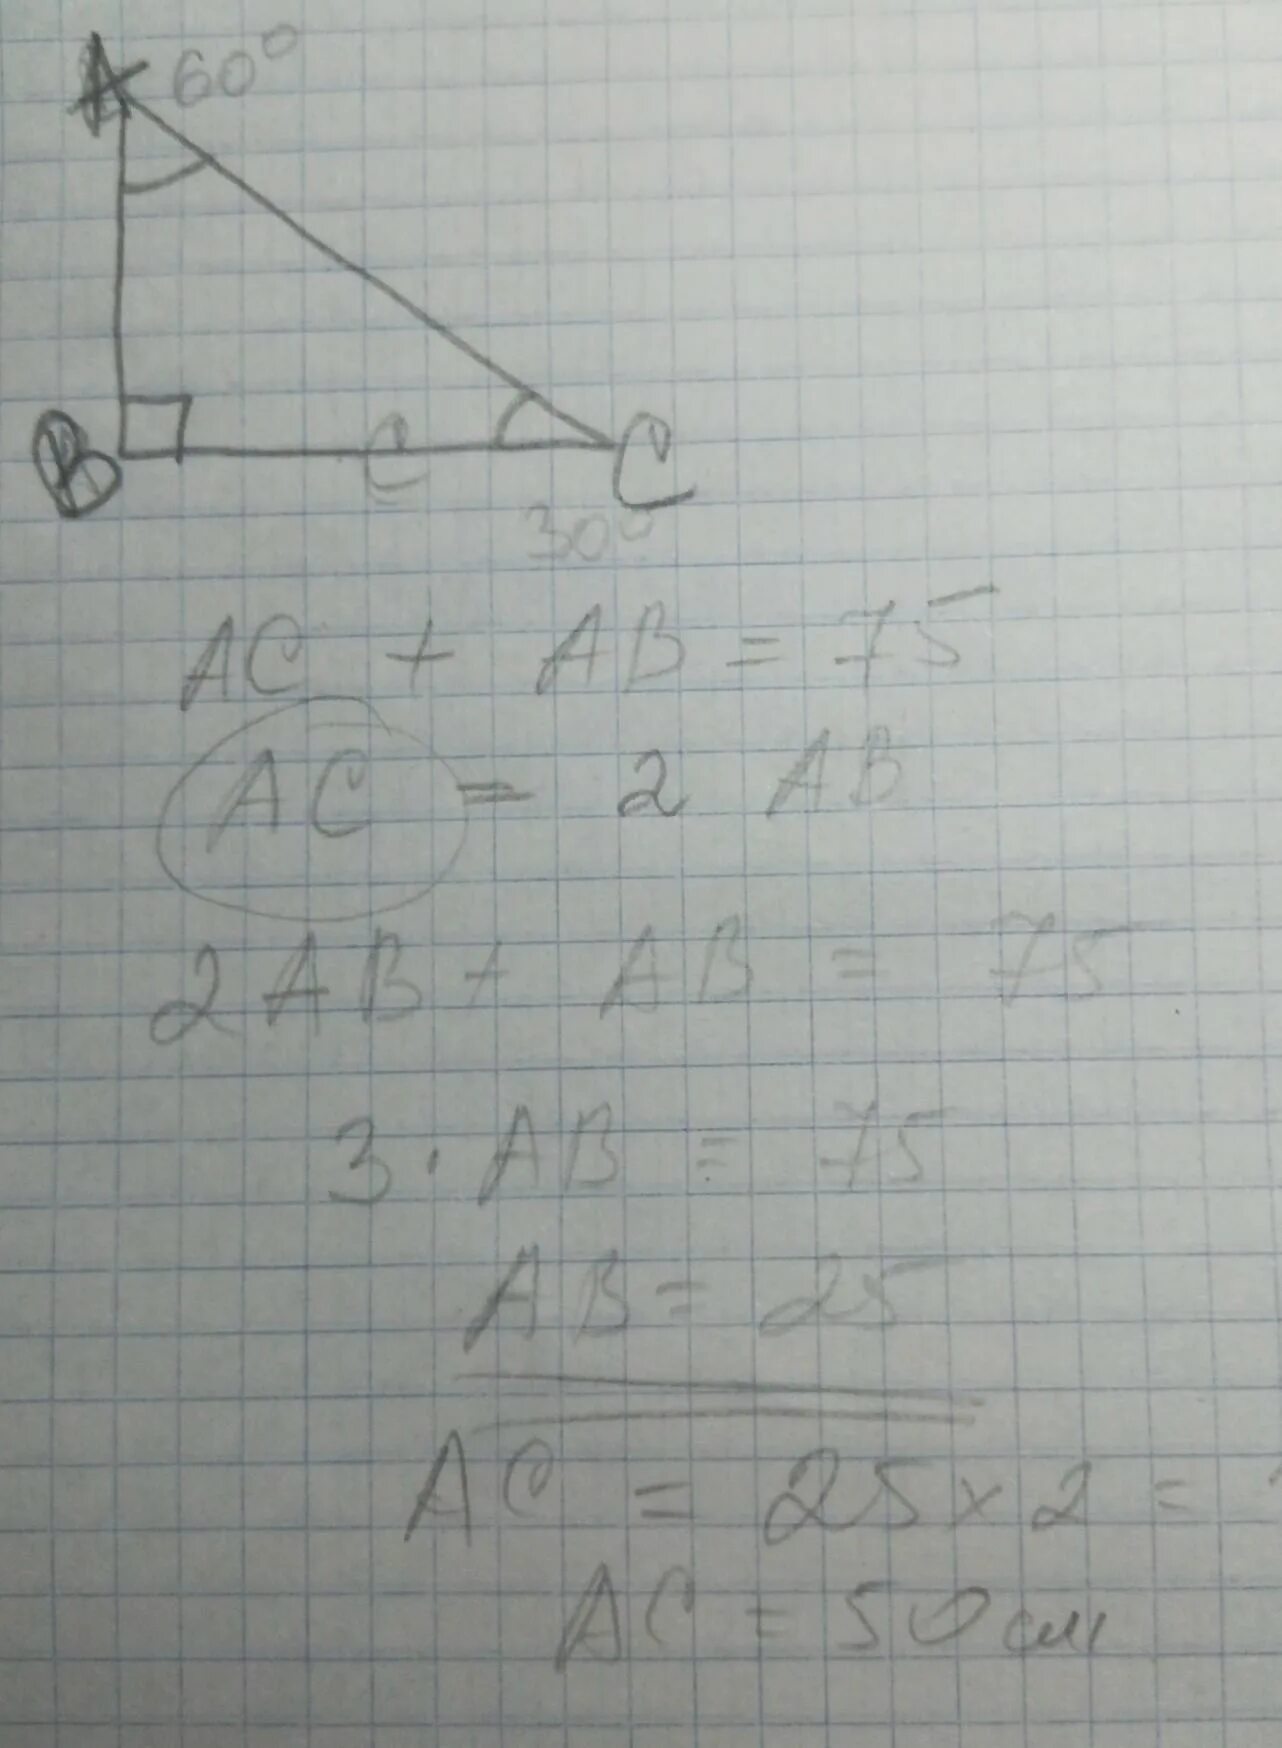 A 60°
B C C
30°
AC + AB = 75
AC = 2 AB
2AB + AB = 75
3 · AB = 75
AB = 25
AC = 25 × 2 =
AC = 50 см